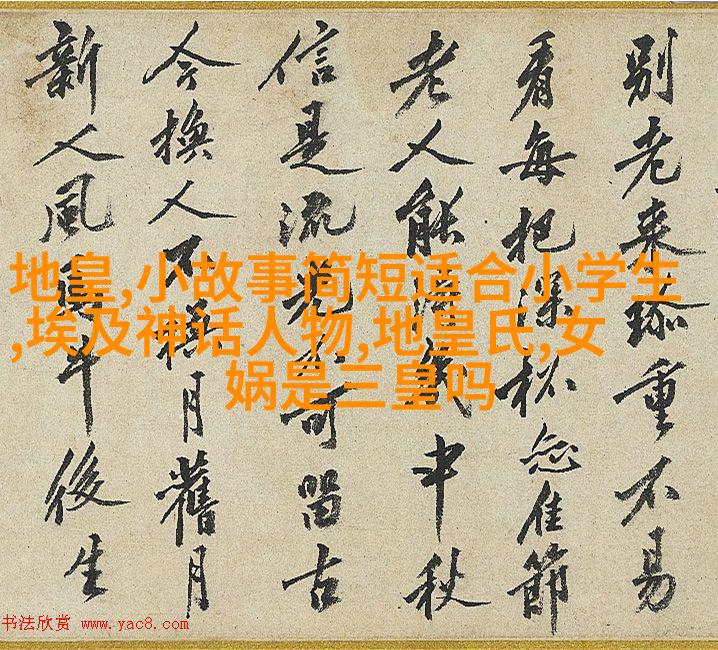 別老来珎重不易
看每把深杯佳節
老人能得幾中秋
信是流光不可留古
今換人不換月舊月
新人風馬牛後生
地皇,小故事简短适合小学生
,埃及神话人物,地皇氏,女
娲是三皇吗
书法欣赏 www.yac8.com